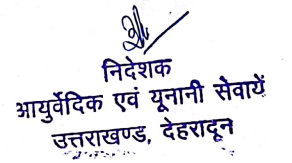 निदेशक
आयुर्वेदिक एवं यूनानी सेवायें
उत्तराखण्ड, देहरादून